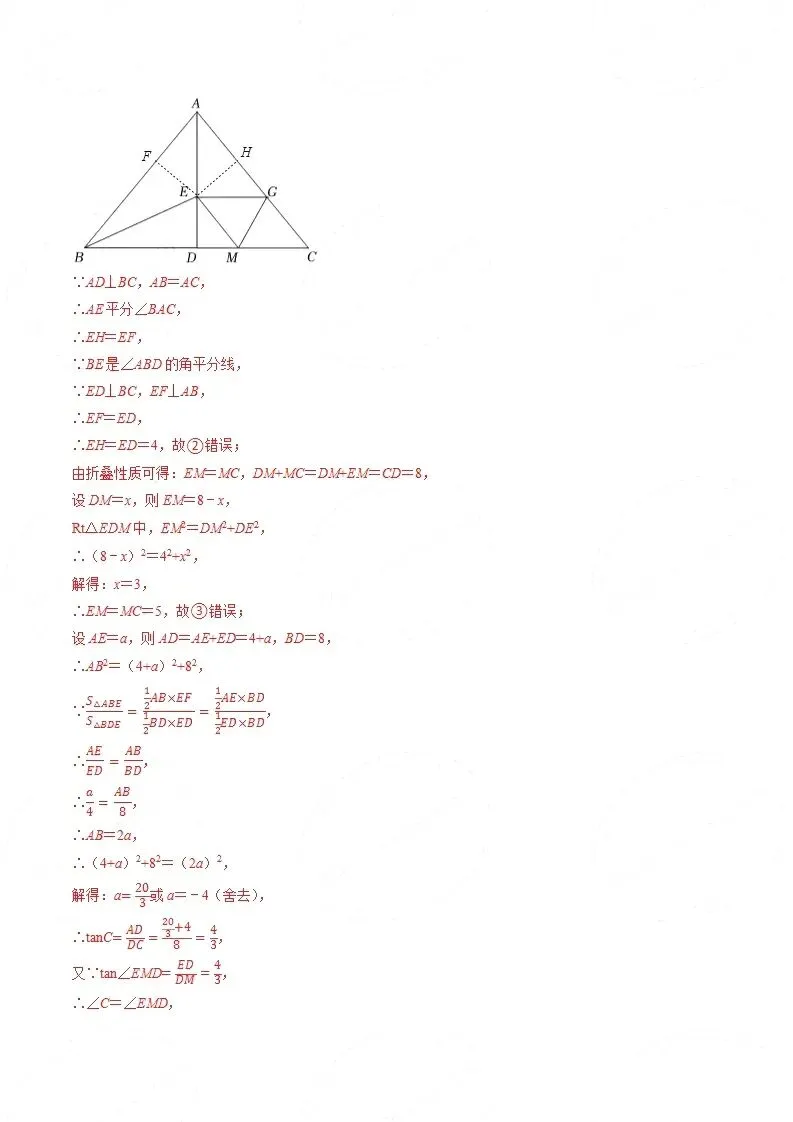 A
F
H
E
G
B
D
M
C
∵AD⊥BC，AB＝AC，
∴AE平分∠BAC，
∴EH＝EF，
∵BE是∠ABD的角平分线，
∵ED⊥BC，EF⊥AB，
∴EF＝ED，
∴EH＝ED＝4，故②错误；
由折叠性质可得：EM＝MC，DM+MC＝DM+EM＝CD＝8，
设DM＝x，则EM＝8﹣x，
Rt△EDM中，EM²＝DM²+DE²，
∴（8﹣x）²＝4²+x²，
解得：x＝3，
∴EM＝MC＝5，故③错误；
设AE＝a，则AD＝AE+ED＝4+a，BD＝8，
∴AB²＝（4+a）²+8²，
∵S△ABE/S△BDE＝(1/2 AB×EF)/(1/2 BD×ED)＝(1/2 AE×BD)/(1/2 ED×BD)，
∴AE/ED＝AB/BD，
∴a/4＝AB/8，
∴AB＝2a，
∴（4+a）²+8²＝（2a）²，
解得：a=20/3或a＝﹣4（舍去），
∴tanC=AD/DC＝(20/3+4)/8＝4/3，
又∵tan∠EMD=ED/DM＝4/3，
∴∠C＝∠EMD，